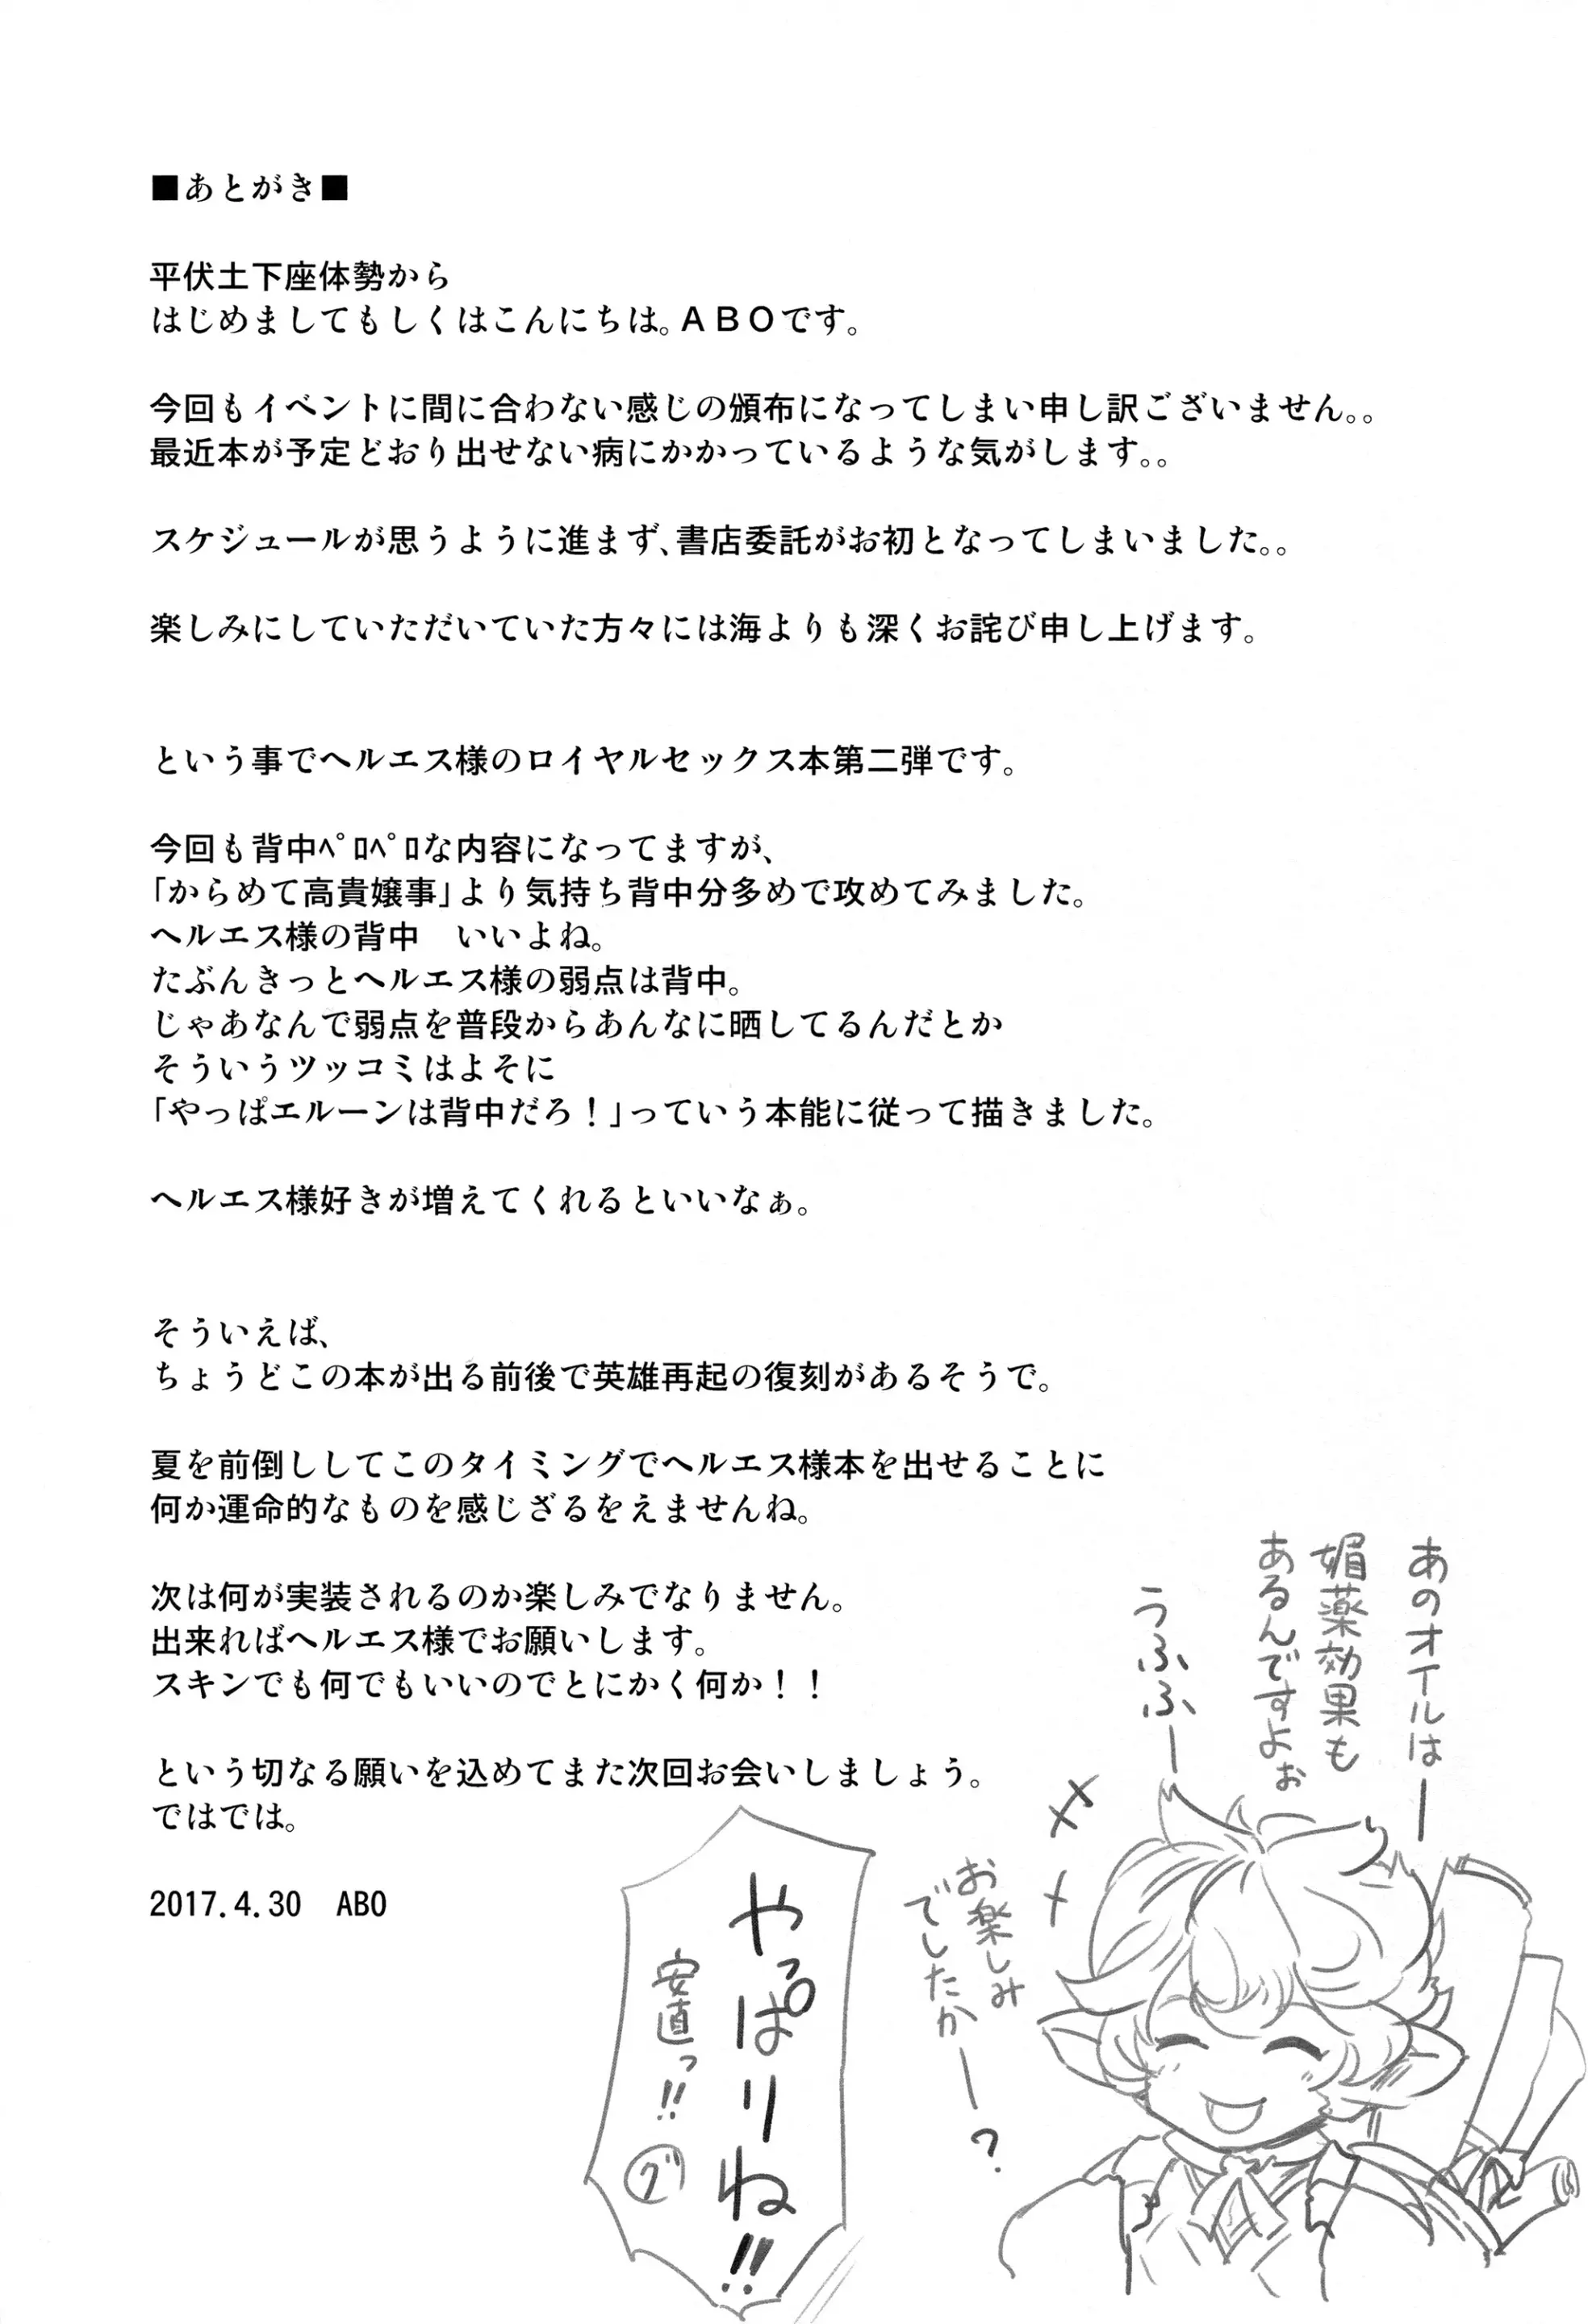 ■あとがき■
平伏土下座体勢から
はじめましてもしくはこんにちは。ＡＢＯです。
今回もイベントに間に合わない感じの頒布になってしまい申し訳ございません。。
最近本が予定どおり出せない病にかかっているような気がします。。
スケジュールが思うように進まず、書店委託がお初となってしまいました。。
楽しみにしていただいていた方々には海よりも深くお詫び申し上げます。
という事でヘルエス様のロイヤルセックス本第二弾です。
今回も背中ﾍﾟﾛﾍﾟﾛな内容になってますが、
「からめて高貴嬢事」より気持ち背中分多めで攻めてみました。
ヘルエス様の背中　いいよね。
たぶんきっとヘルエス様の弱点は背中。
じゃあなんで弱点を普段からあんなに晒してるんだとか
そういうツッコミはよそに
「やっぱエルーンは背中だろ！」っていう本能に従って描きました。
ヘルエス様好きが増えてくれるといいなぁ。
そういえば、
ちょうどこの本が出る前後で英雄再起の復刻があるそうで。
夏を前倒ししてこのタイミングでヘルエス様本を出せることに
何か運命的なものを感じざるをえませんね。
次は何が実装されるのか楽しみでなりません。
出来ればヘルエス様でお願いします。
スキンでも何でもいいのでとにかく何か！！
という切なる願いを込めてまた次回お会いしましょう。
ではでは。
2017.4.30　ABO
あのオイルはー
媚薬効果も
あるんですよぉ
うふふー
お楽しみ
でしたかー？
やっぱりね!!
安直っ!!
グ